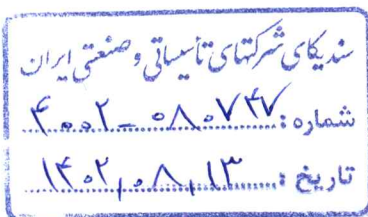 سندیکای شرکتهای تأسیساتی و صنعتی ایران
شماره: ۴۰۰۲-۰۸۰۷۴۷
تاریخ: ۱۴۰۲,۰۸,۱۳